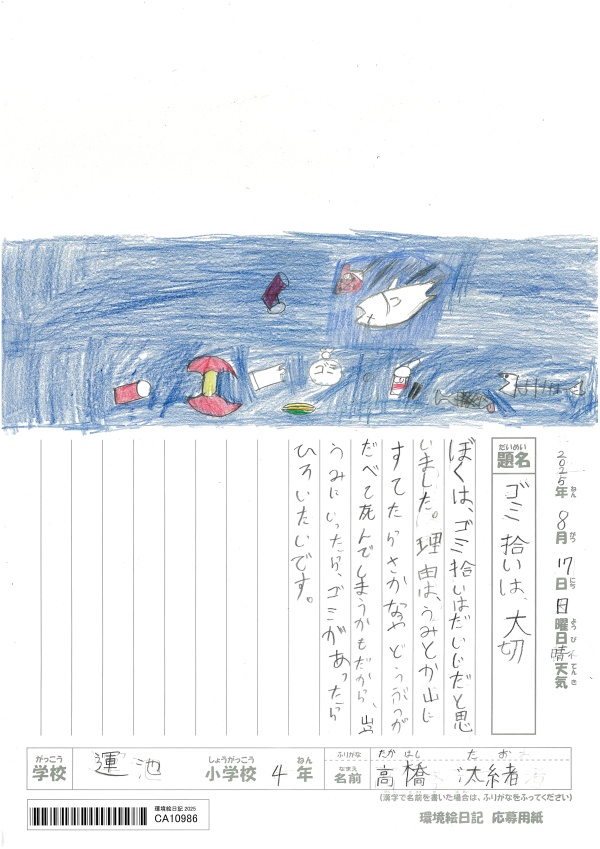 2025年 8月 17日 日曜日 晴天気
ねん がつ にち ようび てんき
だいめい
題名
ゴミ拾いは、大切
ぼくは、ゴミ拾いはだいじだと思
いました。理由は、うみとか山に
すてたらさかなやどうぶつが
だべて死んでしまうかもだから、山や
うみにいったら、ゴミがあったら
ひろいたいです。
がっこう しょうがっこう ねん
学校 運池 小学校 4年
ふりがな たかはし たお
なまえ
名前 高橋 汰緒
(漢字で名前を書いた場合は、ふりがなをふってください)
環境絵日記 2025
CA10986
環境絵日記 応募用紙